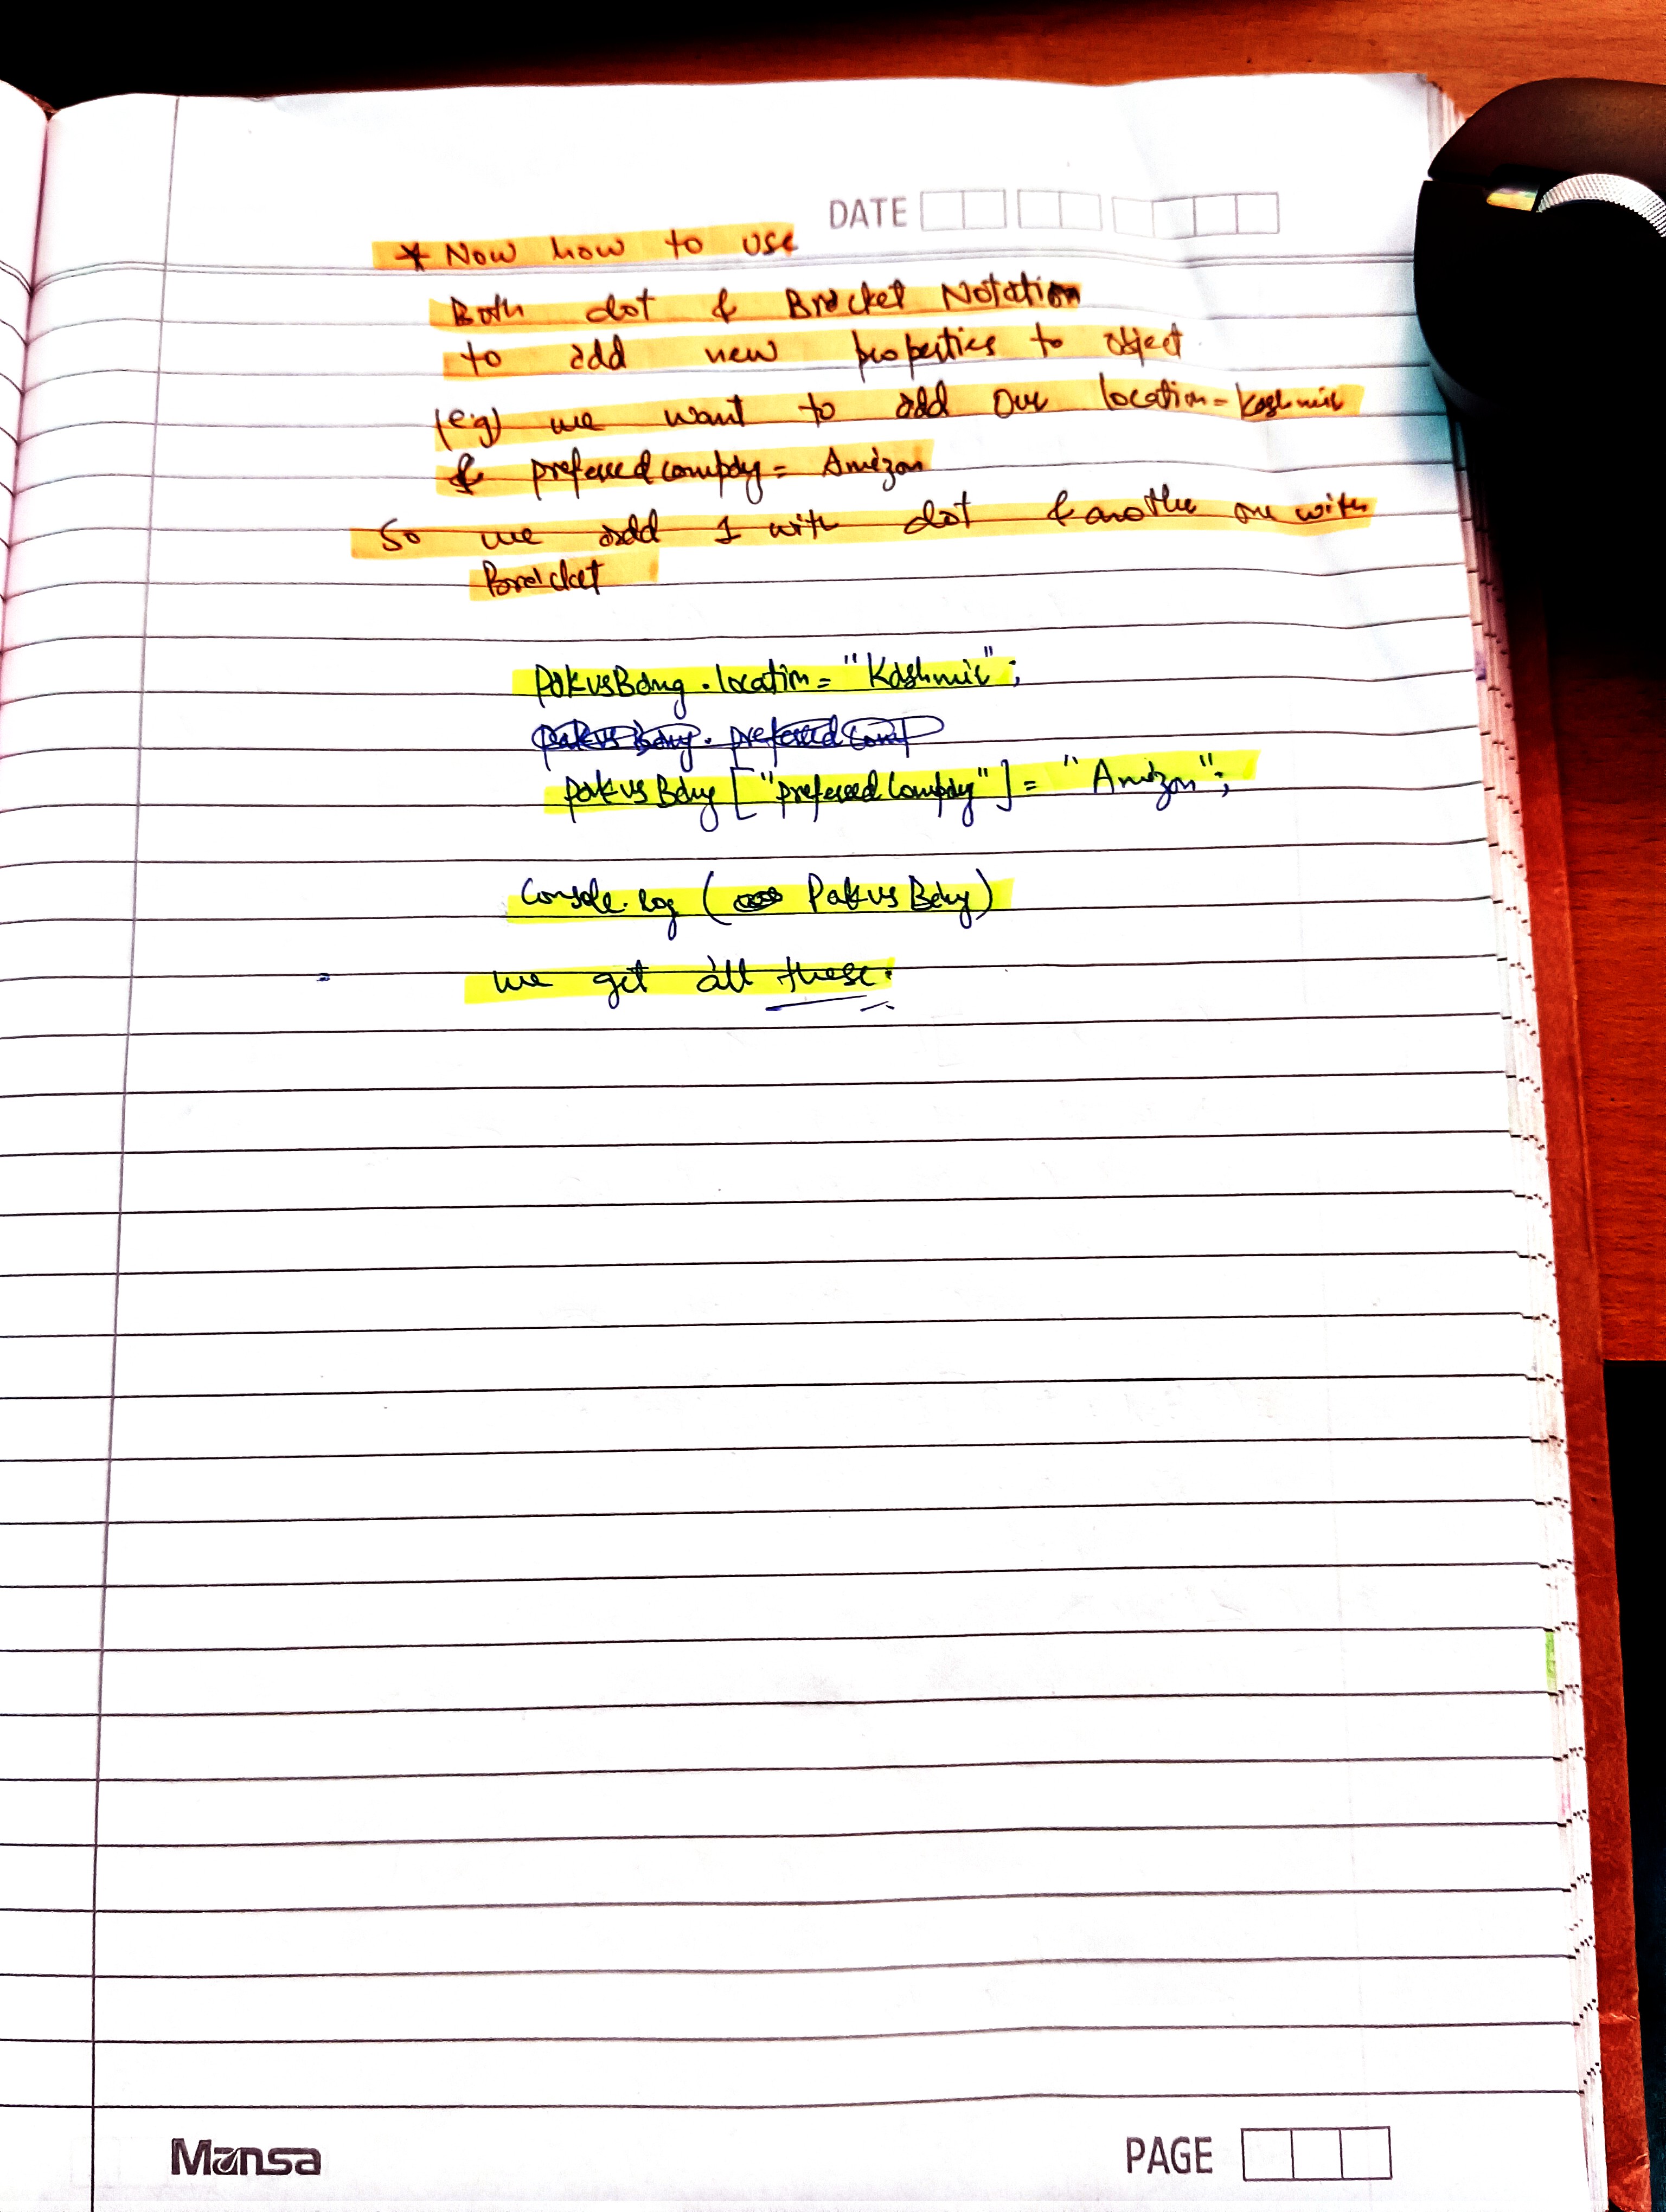 DATE
* Now how to use
Both dot & Bracket Notation
to add new properties to object
(eg) we want to add our location = Kashmir
& preferred company = Amazon
So we add 1 with dot & another one with
Bracket
PakvsBang.location = "Kashmir";
pakvsBang. preferredComp
pakvsBang ["preferredCompany"] = "Amazon";
Console.log ( PakvsBang)
we get all these.
Mansa
PAGE